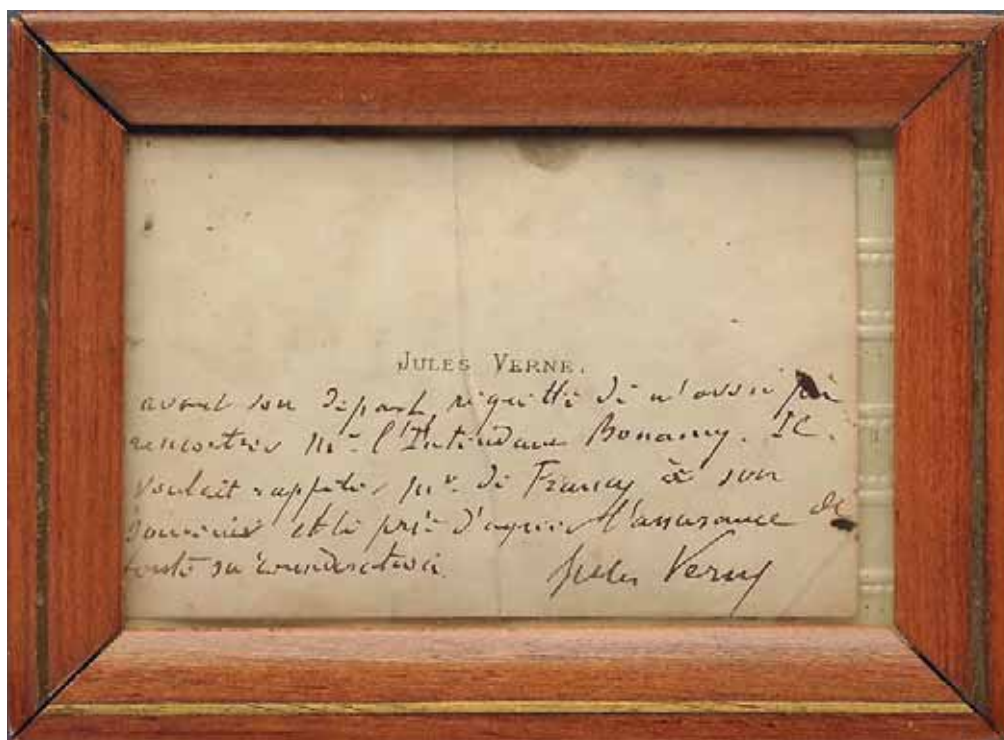 JULES VERNE.
avant son départ, regrette de n'avoir pu
rencontrer Mr. l'Intendant Bonamy. Il
voulait rappeler Mr. de Francy à son
souvenir et le prie d'agréer l'assurance de
toute sa considération.
Jules Verne